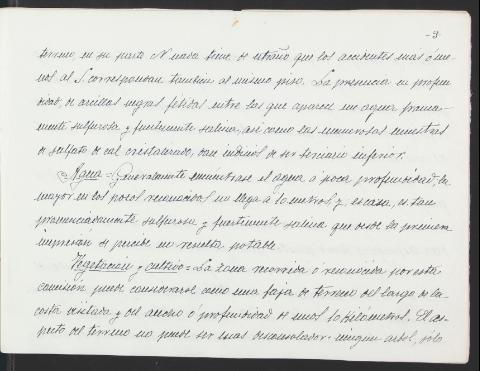 -9
terreno en su parte N nada tiene de extraño que los accidentes mas ó me-
nos al S correspondan tambien al mismo piso. La presencia en profun-
didad, de arcillas negras fétidas entre las que aparece un agua franca-
mente sulfurosa y fuertemente salina, asi como las numerosas muestras
de sulfato de cal cristalizado, dan indicios de ser terciario inferior.
Agua = Generalmente encuéntrase el agua á poca profundidad, la
mayor en los pozos reconocidos no llega á 10 metros y escasa, es tan
pronunciadamente sulfurosa y fuertemente salina que desde la primera
impresion se percibe no resulta potable
Vegetacion y cultivo = La zona recorrida ó reconocida por esta
comision puede considerarse como una faja de terreno del largo de la
costa visitada y del ancho ó profundidad de unos 10 kilometros. El as-
pecto del terreno no puede ser mas desconsolador. ningun arbol, sólo